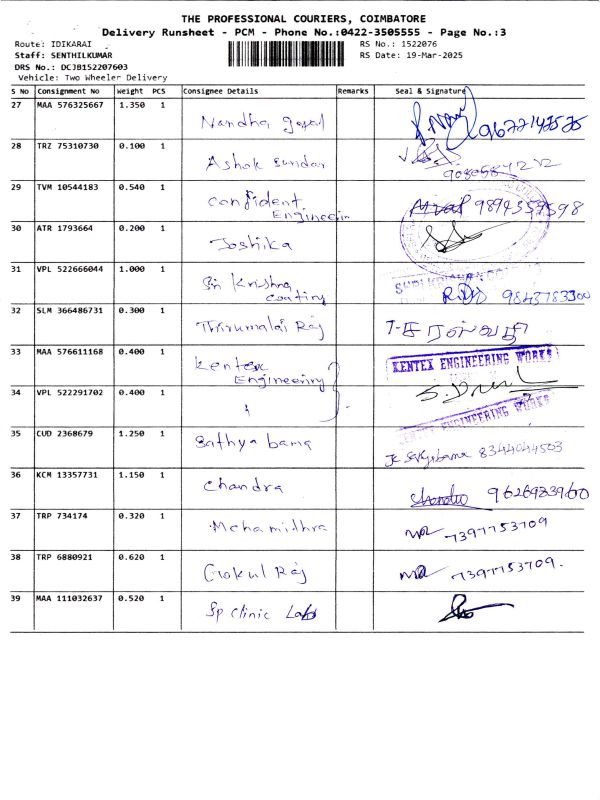 THE PROFESSIONAL COURIERS, COIMBATORE
Delivery Runsheet - PCM - Phone No.:0422-3505555 - Page No.:3
Route: IDIKARAI RS No.: 1522076
Staff: SENTHILKUMAR RS Date: 19-Mar-2025
DRS No.: DCJB152207603
Vehicle: Two Wheeler Delivery
S No Consignment No Weight PCS Consignee Details Remarks Seal & Signature
27 MAA 576325667 1.350 1 Nandha gopal
28 TRZ 75310730 0.100 1 Ashok Sundar
29 TVM 10544183 0.540 1 Confident
Engineerin
30 ATR 1793664 0.200 1 Joshika
31 VPL 522666044 1.000 1 Sri Krishna
coating 9843783300
32 SLM 366486731 0.300 1 Thirumalai Raj
33 MAA 576611168 0.400 1 Kentex
Engineering
KENTEX ENGINEERING WORKS
34 VPL 522291702 0.400 1
KENTEX ENGINEERING WORKS
35 CUD 2368679 1.250 1 Sathya bama 8344044503
36 KCM 13357731 1.150 1 Chandra Chandra 9626983960
37 TRP 734174 0.320 1 Mehamithra 7397753709
38 TRP 6880921 0.620 1 Gokul Raj 7397753709.
39 MAA 111032637 0.520 1 Sp Clinic Lab